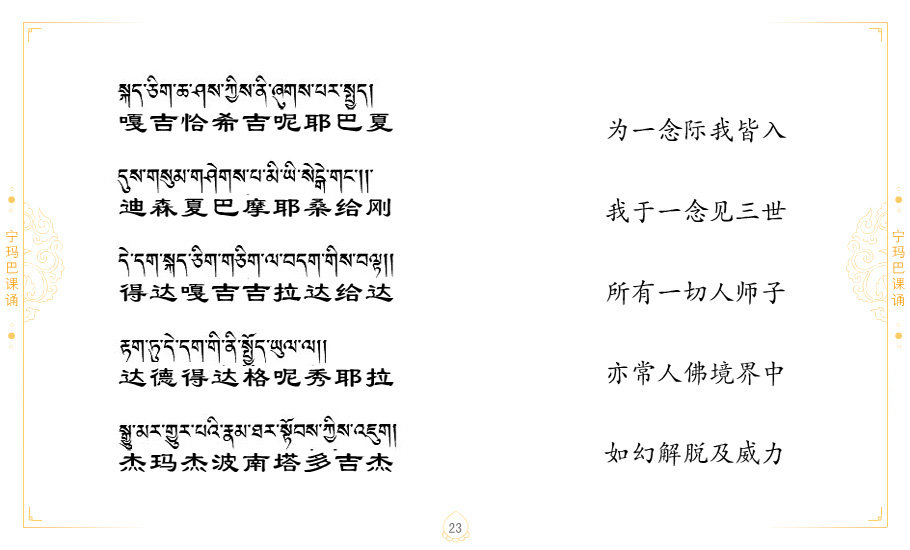 སྐད་ཅིག་ཆ་ཤས་ཀྱིས་ནི་ཞུགས་པར་སྤྱད།
嘎吉恰希吉呢耶巴夏
为一念际我皆入
དུས་གསུམ་གཤེགས་པ་མི་ཡི་སེངྒེ་གང་།།
迪森夏巴摩耶桑给刚
我于一念见三世
དེ་དག་སྐད་ཅིག་གཅིག་ལ་བདག་གིས་བལྟ།།
得达嘎吉吉拉达给达
所有一切人师子
རྟག་ཏུ་དེ་དག་གི་ནི་སྤྱོད་ཡུལ་ལ།།
达德得达格呢秀耶拉
亦常人佛境界中
སྒྱུ་མར་གྱུར་པའི་རྣམ་ཐར་སྟོབས་ཀྱིས་འཇུག།
杰玛杰波南塔多吉杰
如幻解脱及威力
宁玛巴课诵
宁玛巴课诵
23